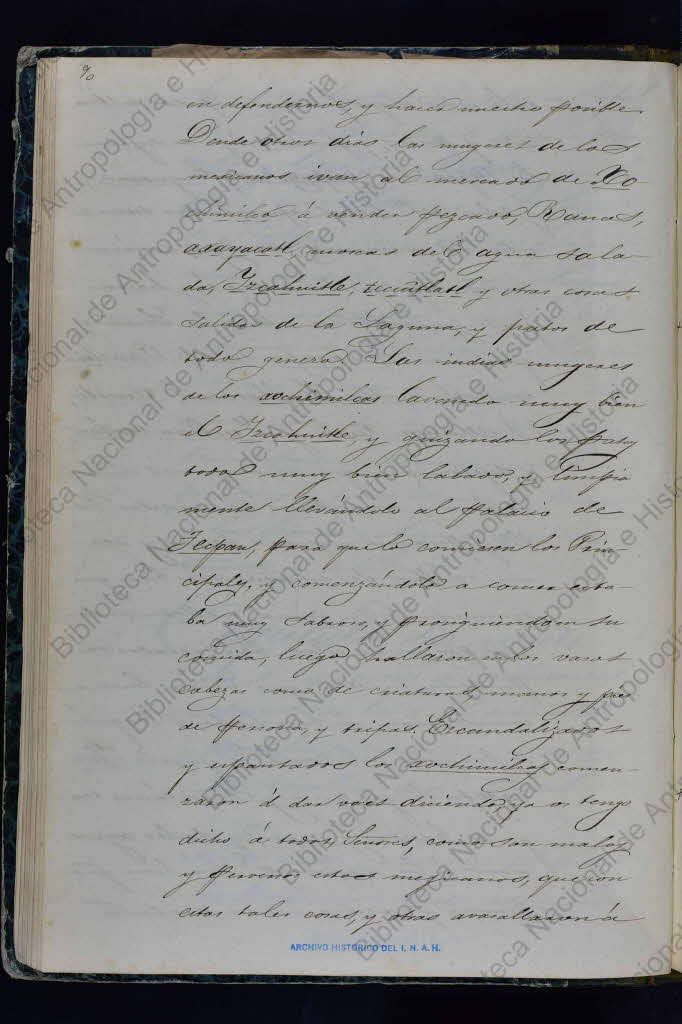 90
en defendernos, y hacer nuestro posible.
Dende otros dias las mugeres de los
mexicanos ivan al mercado de Xo
chimilco á vender pezcado, Ranas,
axayacatl, moscas del agua sala-
da, Yzcahuitle, tecuitlatl y otras cosas
salidas de la Laguna, y patos de
todo genero. Las indias mugeres
de los xochimilcas lavando muy bien
el Yzcahuitle, y guizando los patos y
todo muy bien labado, y limpia
mente llevándolo al Palacio de
Tecpan, para que lo comiesen los Prin-
cipales, y comenzándolo a comer esta-
ba muy sabroso, y prosiguiendo en su
comida, luego hallaron en los vasos
cabezas como de criaturas, manos y pies
de Persona, y tripas. Escandalizados
y espantados los xochimilcas comen-
zaron á dar voces diciendo, ya os tengo
dicho á todos, Señores, como son malos
y perversos estos mexicanos, que con
estas tales cosas, y otras avasallaron á
ARCHIVO HISTÓRICO DEL I. N. A. H.
Biblioteca Nacional de Antropología e Historia